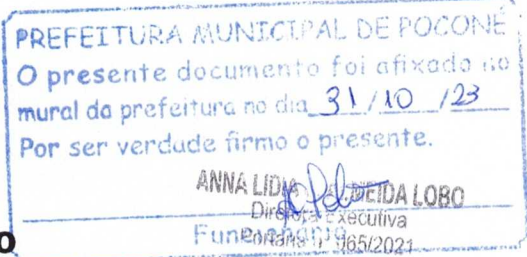 PREFEITURA MUNICIPAL DE POCONÉ
O presente documento foi afixado no
mural da prefeitura no dia 31/10/23
Por ser verdade firmo o presente.
ANNA LIDIA ALMEIDA LOBO
Diretora Executiva
Portaria nº 965/2021
o